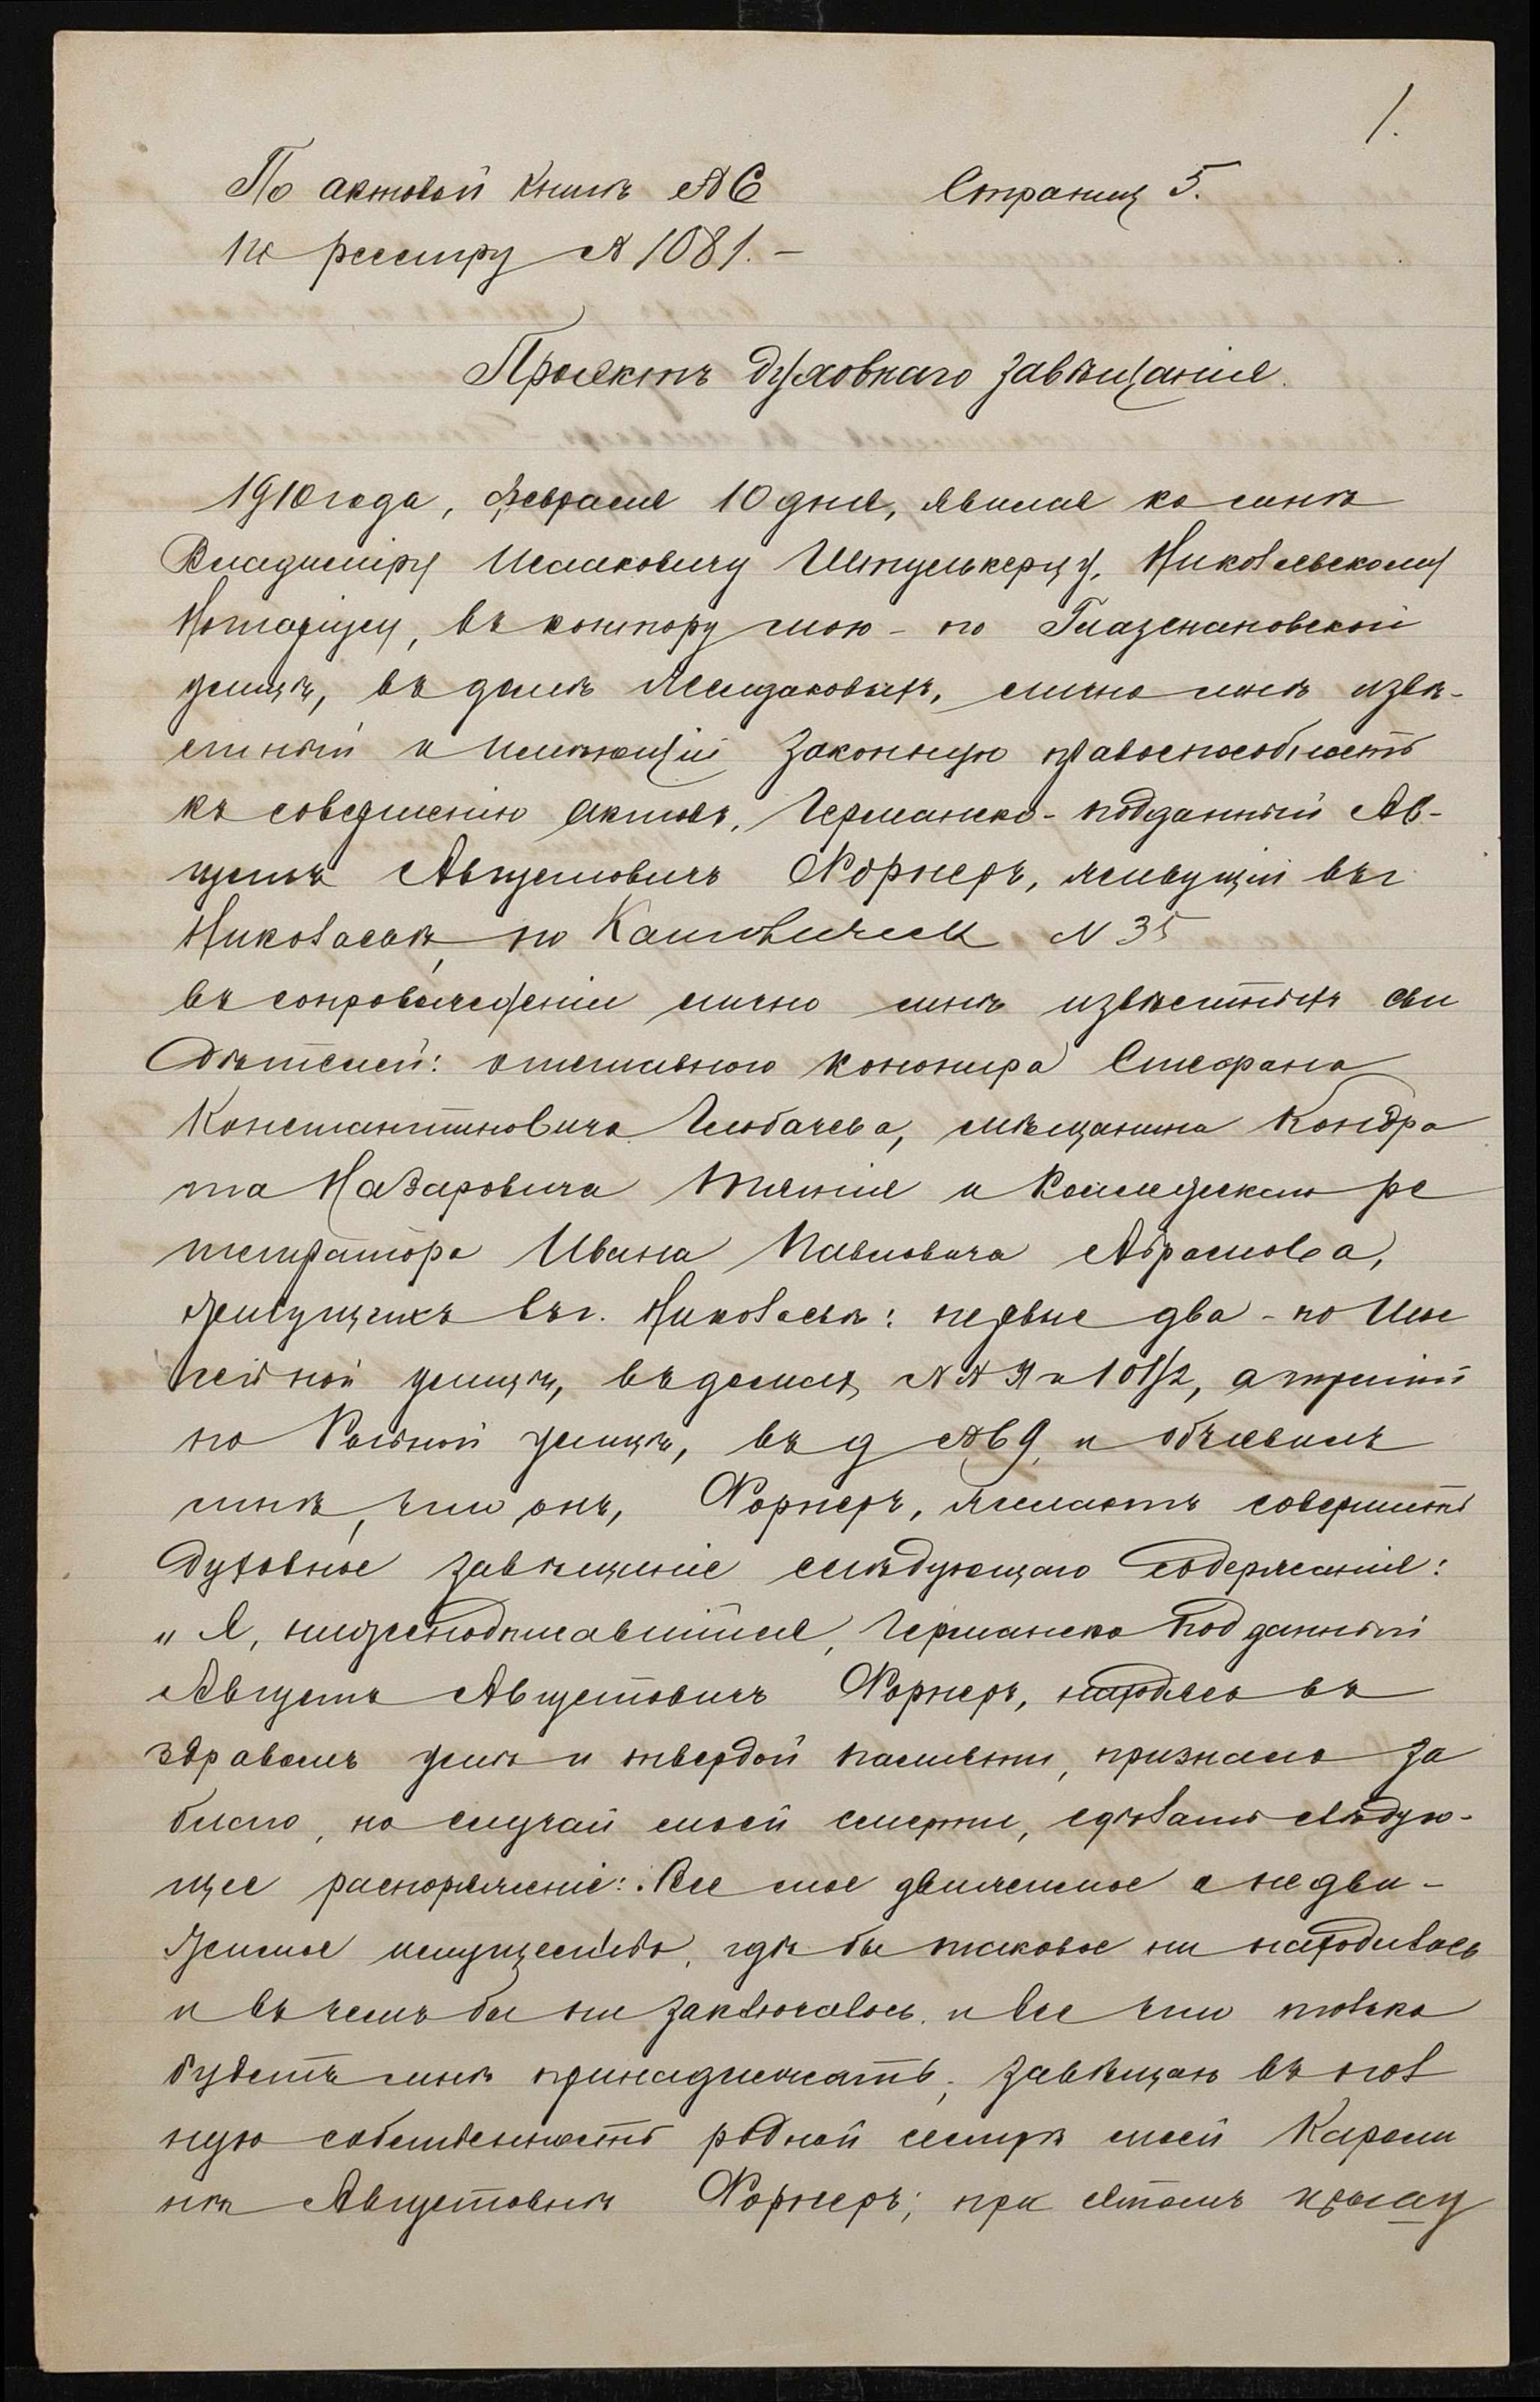 1.
По актовой книгѣ №6 Страниц 5.
по реестру № 1081.–
Проектъ духовнаго завѣщанія.
1910 года, февраля 10 дня, явился ко мнѣ
Владиміру Исааковичу Штулькерцу, Николаевскому
Нотаріусу, въ контору мою – по Глазенаповской
улицѣ, въ домѣ лично мнѣ извѣ-
стный и имѣющій законную правоспособность
къ совершенію актовъ, Германско-подданный Ав-
густъ Августовичъ Форнеръ, живущій въ г.
Николаевѣ, по № 35
въ сопровожденіи лично мнѣ извѣстныхъ сви
дѣтелей: отставного канонира Стефана
Константиновича мѣщанина Кондра
та Назаровича и Коллежскаго ре
гистратора Ивана Павловича Абрамова,
живущихъ въ г. Николаевѣ: первые два – по
улицѣ, въ домахъ №№ и 101/2, а третій
по улицѣ, въ д №69, и объявилъ
мнѣ, что онъ, Форнеръ, желаетъ совершить
духовное завѣщаніе слѣдующаго содержанія:
„Я, нижеподписавшійся, Германско подданный
Августъ Августовичъ Форнеръ, находясь въ
здравомъ умѣ и твердой памяти, призналъ за
благо, на случай моей смерти, сдѣлать слѣдую-
щее распоряженіе: Все мое движимое и недви-
жимое имущество, гдѣ бы таковое ни находилось
и въ чемъ бы ни заключалось, и все что только
будетъ мнѣ принадлежать, завѣщаю въ пол
ную собственность родной сестрѣ моей Кароли
нѣ Августовнѣ Форнеръ; при этомъ